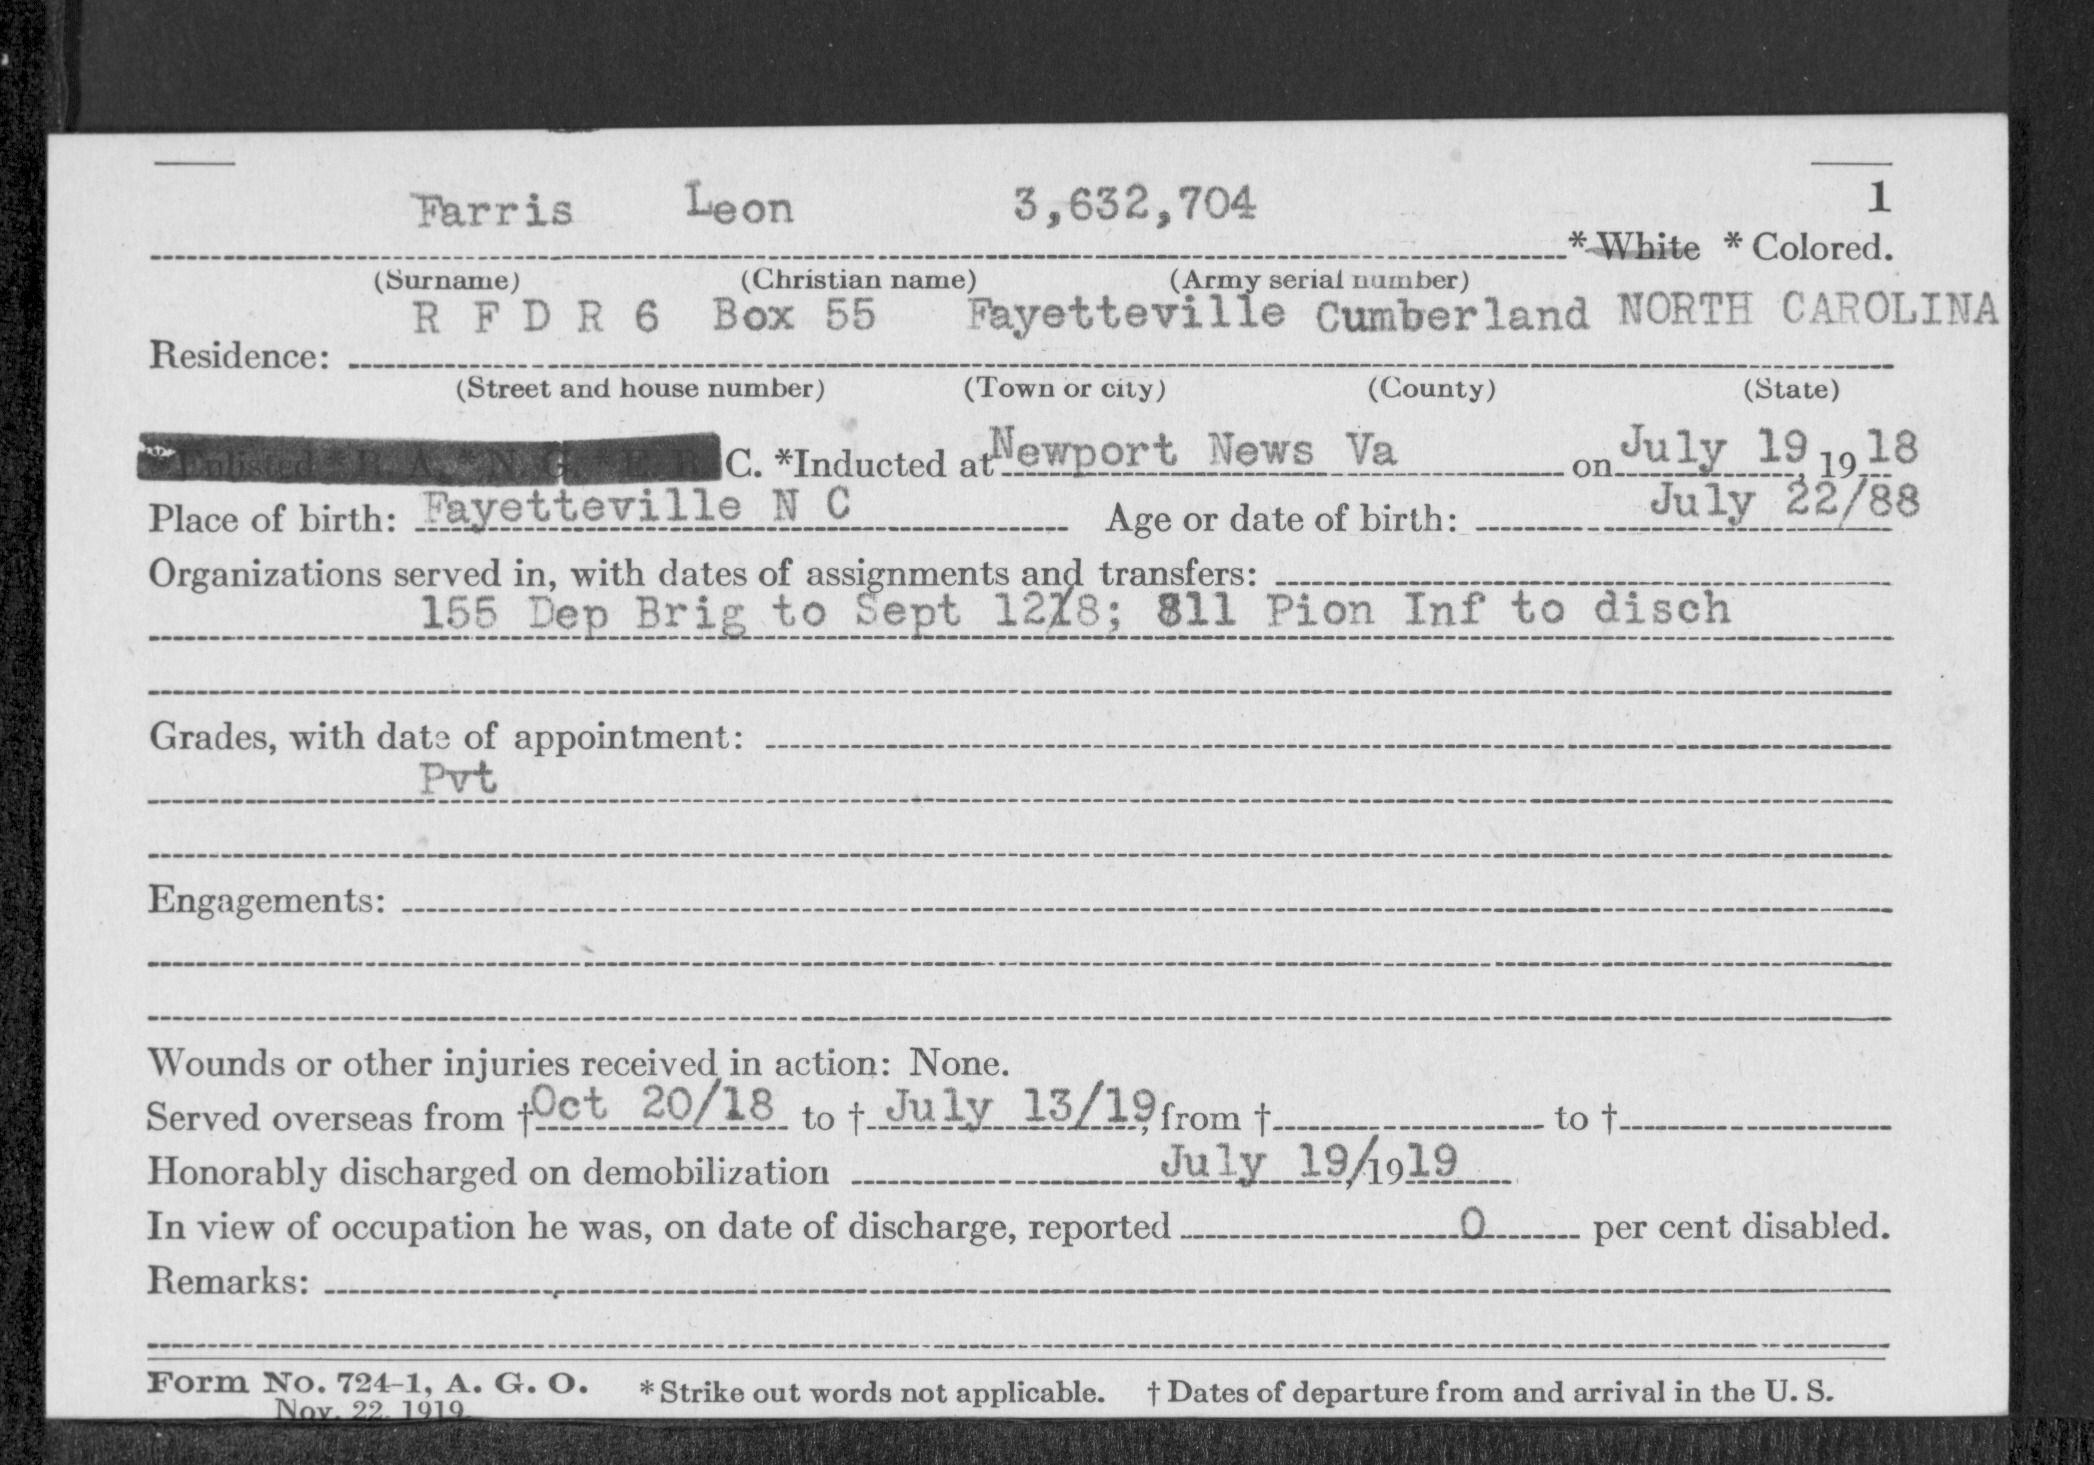 Farris Leon 3,632,704 1
* White * Colored.
(Surname) (Christian name) (Army serial number)
R F D R 6 Box 55 Fayetteville Cumberland NORTH CAROLINA
Residence:
(Street and house number) (Town or city) (County) (State)
*Enlisted * R. A. * N. G. * E. R. C. *Inducted at Newport News Va on July 19, 1918
Place of birth: Fayetteville N C Age or date of birth: July 22/88
Organizations served in, with dates of assignments and transfers:
155 Dep Brig to Sept 12/18; 811 Pion Inf to disch
Grades, with date of appointment:
Pvt
Engagements:
Wounds or other injuries received in action: None.
Served overseas from † Oct 20/18 to † July 13/19, from † to †
Honorably discharged on demobilization July 19/1919
In view of occupation he was, on date of discharge, reported 0 per cent disabled.
Remarks:
Form No. 724-1, A. G. O. * Strike out words not applicable. † Dates of departure from and arrival in the U. S.
Nov. 22, 1919.